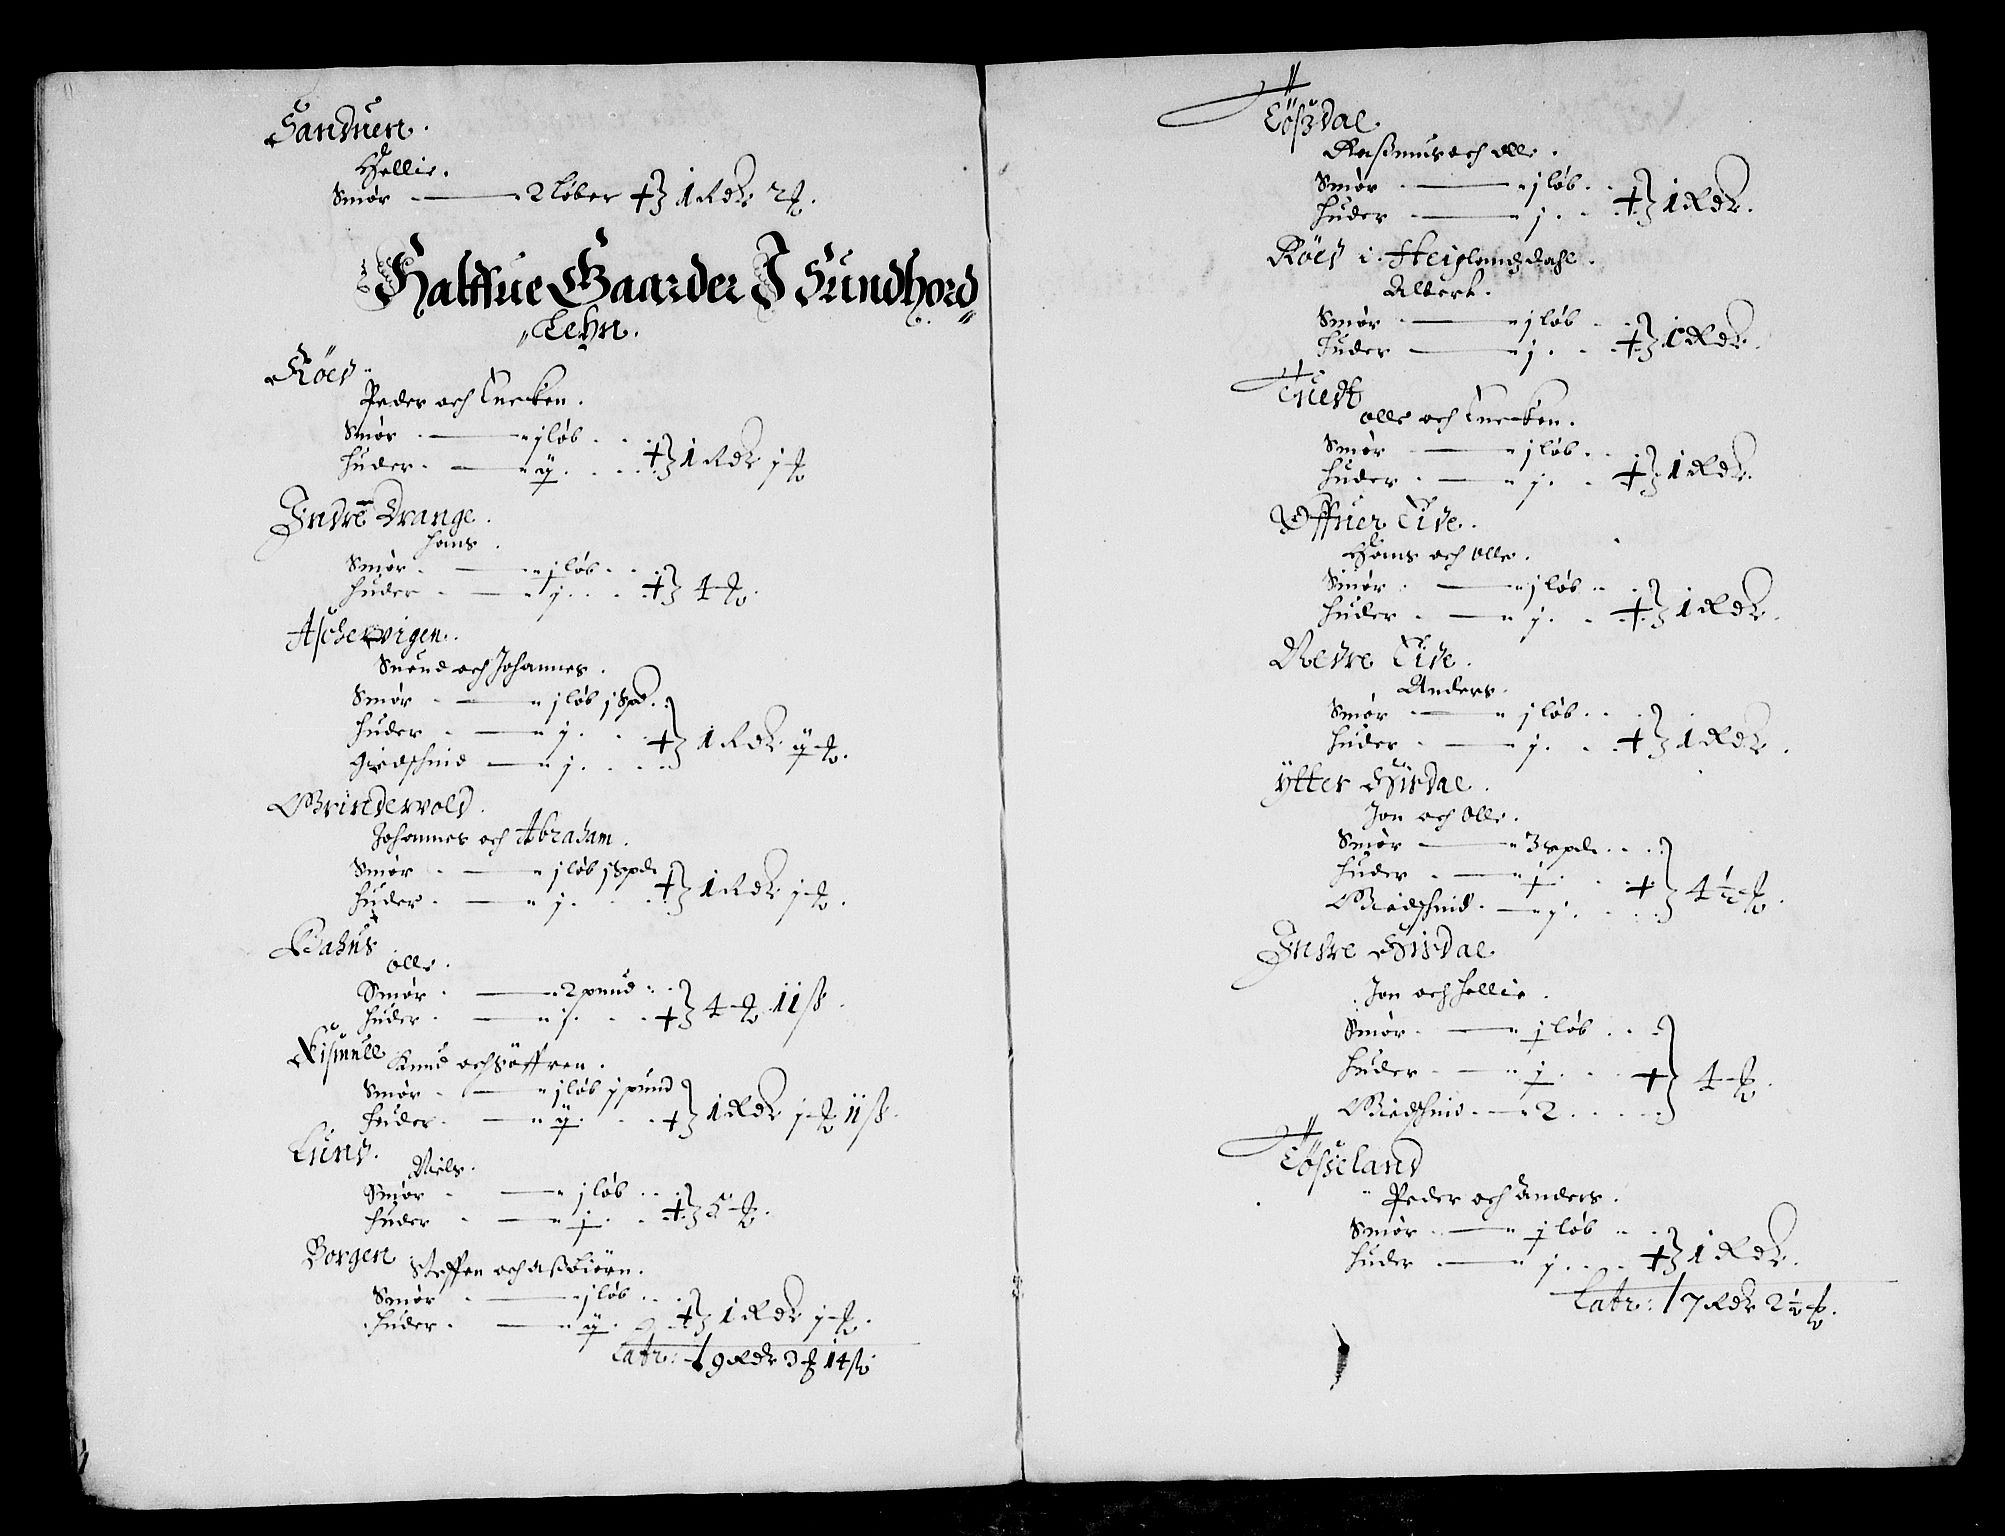 Sanduen.
Hellie.
Smør 2 løber 1 Rdr 2
Halffue Gaarder J Sundhord
Lehn.
Röes
Peder och Tuecken.
Smør j løb
huder ij. 1 Rdr j
Indre Drange.
Hans
Smør j løb
huder j. 4
Aschevigen.
Suend och Johannes.
Smør j løb j Spd.
huder j.
giedschind j. 1 Rdr ij
Grindevold.
Johannes och Abraham.
Smør j løb j Spd
huder j. 1 Rdr j
Bahus
olle.
Smør 2 pund
huder j. 4 11 ß
Knud och Söffren.
Smør j løb j pund
huder ij. 1 Rdr j 11 ß
Lund.
Niels.
Smør j løb
huder j. 5
Borgen Steffen och Assbiörn.
Smør j løb
huder ij. 1 Rdr j
Latr: 9 Rdr 3 14 ß
Tößdal
Rasmus och olle.
Smør j løb
huder j. 1 Rdr.
Röes i Heiglandzdahl.
Albert.
Smør j løb
huder j. 1 Rdr.
Tuedt
olle och Tuecken.
Smør j løb.
huder j. 1 Rdr.
Øffuer Tise.
Hans och olle.
Smør j løb
huder j. 1 Rdr.
Nedre Tise.
Anders.
Smør j løb
huder j. 1 Rdr.
Ytter Hisdal.
Jon och olle.
Smør 3 spd
huder j.
Giedschind. j. 4 1/2
Indre Hisdal
Jon och hellie.
Smør j løb
huder j.
Giedschind 2 4
Tösseland
Peder och Anders.
Smør j løb
huder j. 1 Rdr.
Latr: 7 Rdr 2 1/2